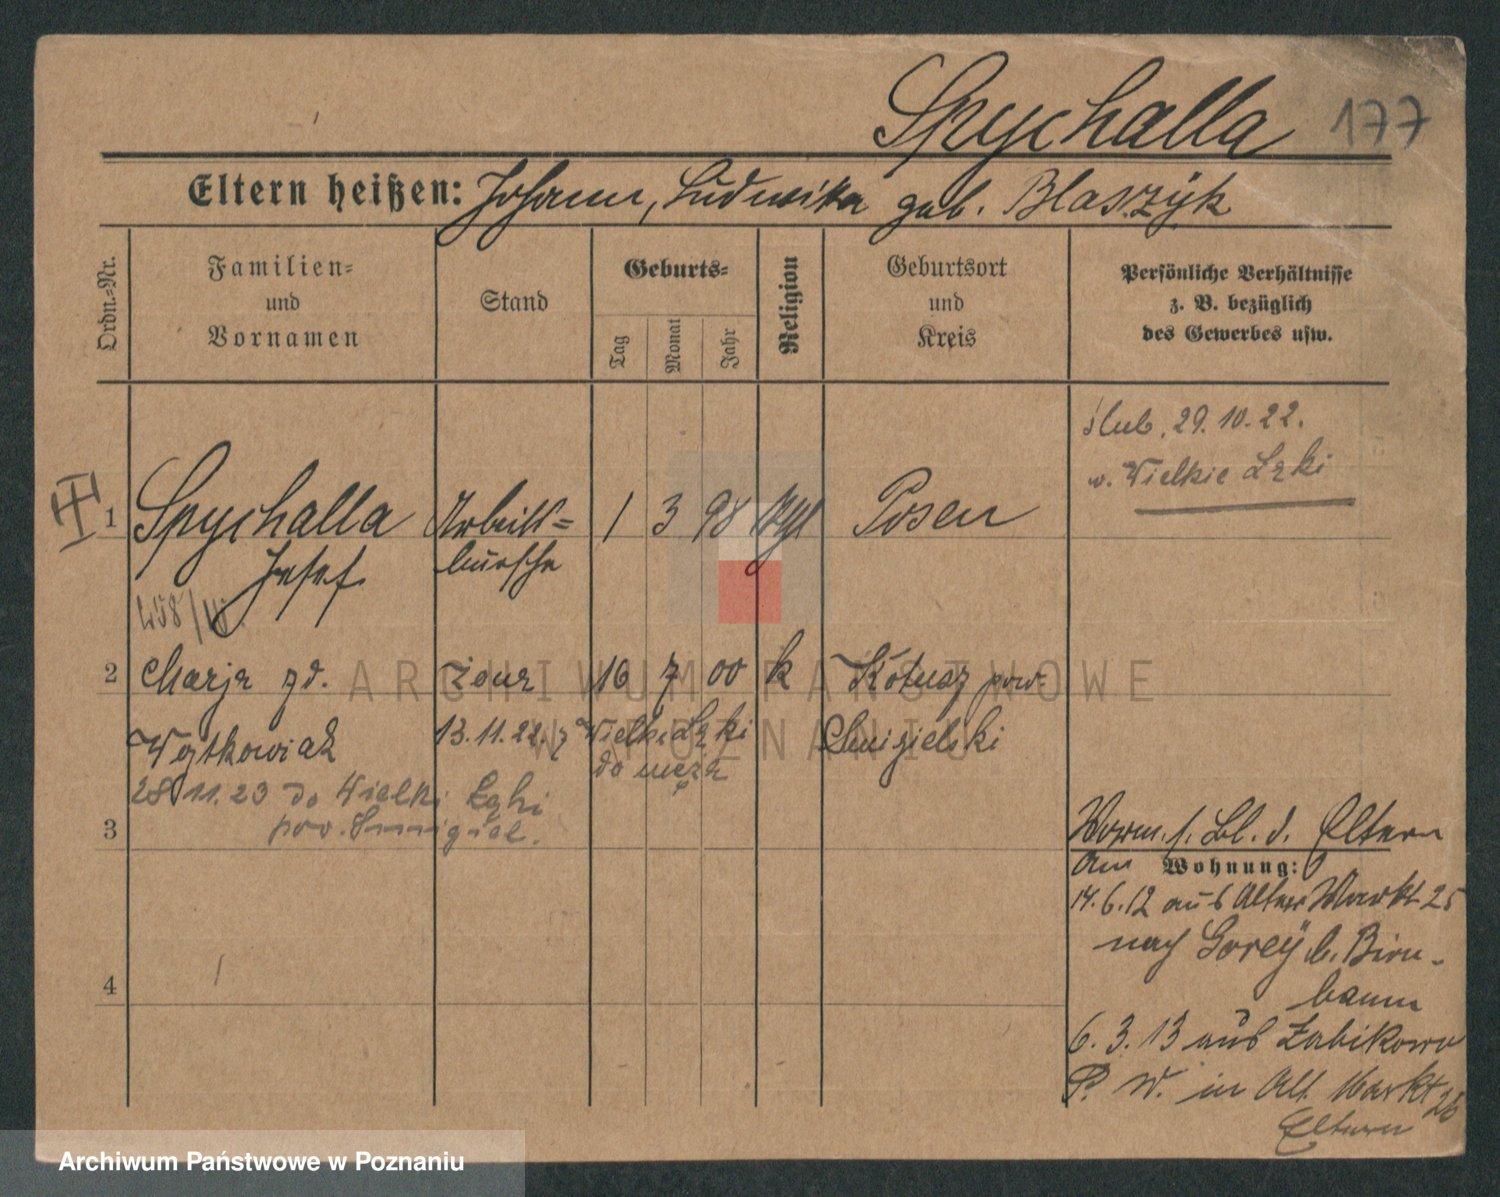 Spychalla 177
Eltern heißen: Johann, Ludwika geb. Blaszyk
Ordn.-Nr.
Familien- und Vornamen
Stand
Geburts-
Tag
Monat
Jahr
Religion
Geburtsort und Kreis
Persönliche Verhältnisse z. B. bezüglich des Gewerbes usw.
ślub. 29.10.22.
w. Wielkie Łęki
1 Spychalla Arbeits= 1 3 98 Posen
Josef bursche
2 Marja zd. żona 16 7 00 k Kotusz pow.
Wojtkowiak 13.11.22. z Wielk. Łęki Śmigielski
do męża
28 11.23 do Wielki Łęki
3 pow. Śmigiel.
Vorm. s. Bl. d. Eltern
am Wohnung:
14.6.12 aus Alter Markt 25
nach b. Birn-
baum
4
6.3.13 aus Zabikowo
P. W. in Alt. Markt 26
Eltern
ARCHIWUM PAŃSTWOWE
W POZNANIU
Archiwum Państwowe w Poznaniu